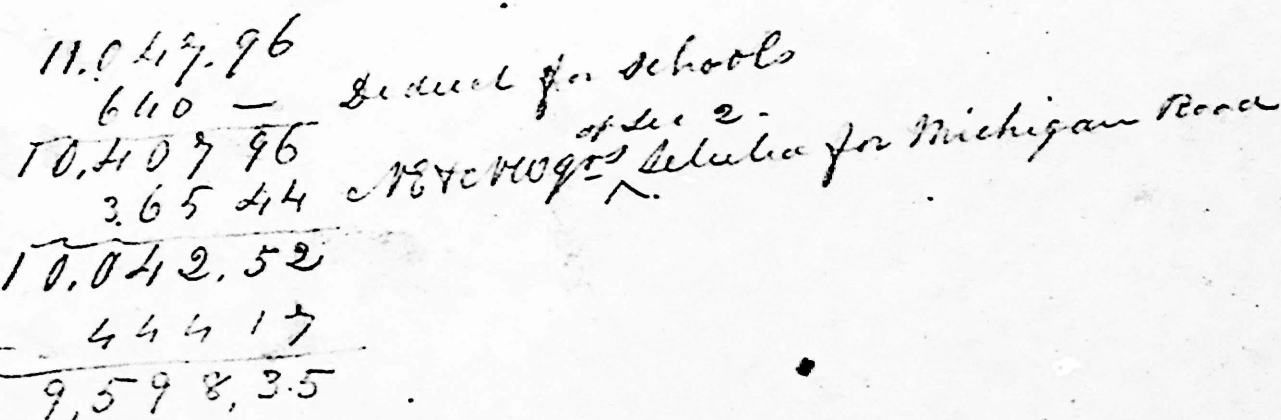 11.047.96
640 — Deduct for Schools
10,407 96
of Sec 2.
365 44 NE & NW qrs ^ Selected for Michigan Road
10.042.52
444 17
9,598,35